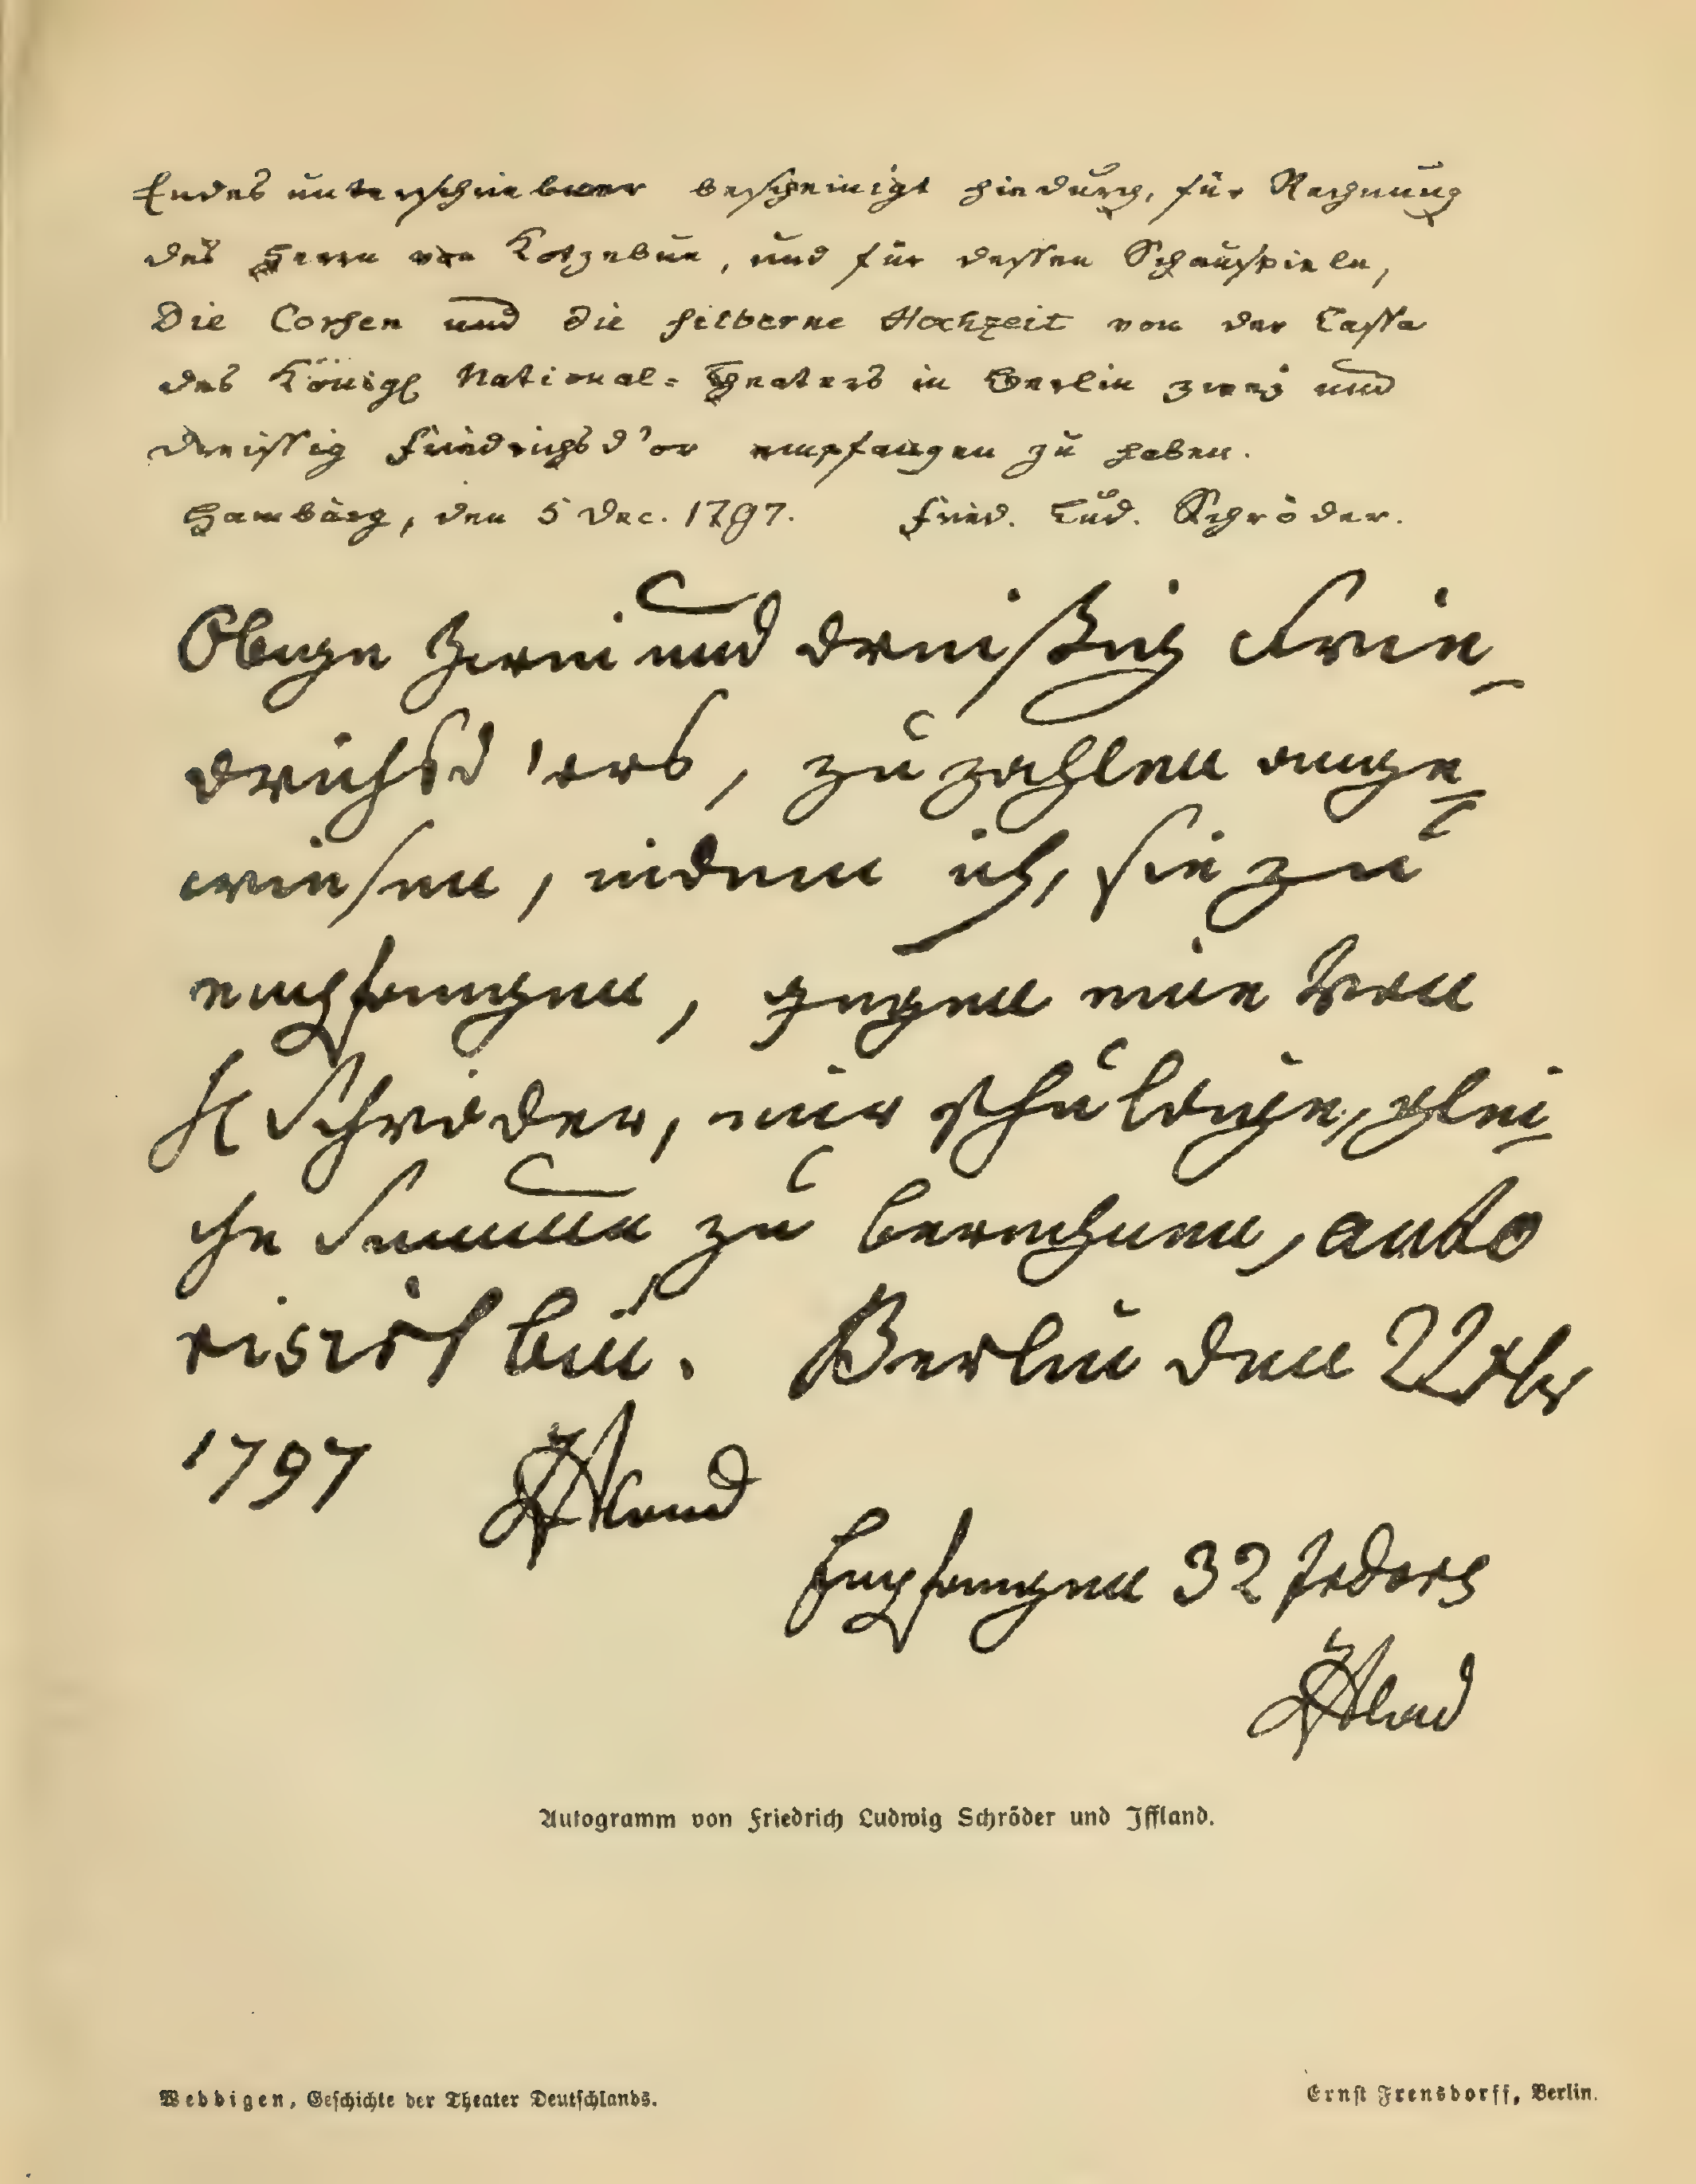 Endes unterschriebener bescheinigt hiedurch, für Rechnung
des Herrn von Kotzebue, und für dessen Schauspiele,
Die Corsen und die silberne Hochzeit von der Cassa
des Königl National-Theaters in Berlin zwei und
dreissig Friedrichsd'or empfangen zu haben.
Hamburg, den 5 Dec. 1797. Fried. Lud. Schröder.
Obige Zwei und dreißig Frie-
drichsd'ors, zu zahlen ange-
wiesen, indem ich, sie zu
empfangen, gegen eine von
H Schröder, mir schuldige, glei-
che Summe zu berechnen, auto
risirt bin. Berlin den 22t
1797 Iffland
Empfangen 32 Frdors
Iffland
Autogramm von Friedrich Ludwig Schröder und Iffland.
Weddigen, Geschichte der Theater Deutschlands.
Ernst Frensdorff, Berlin.